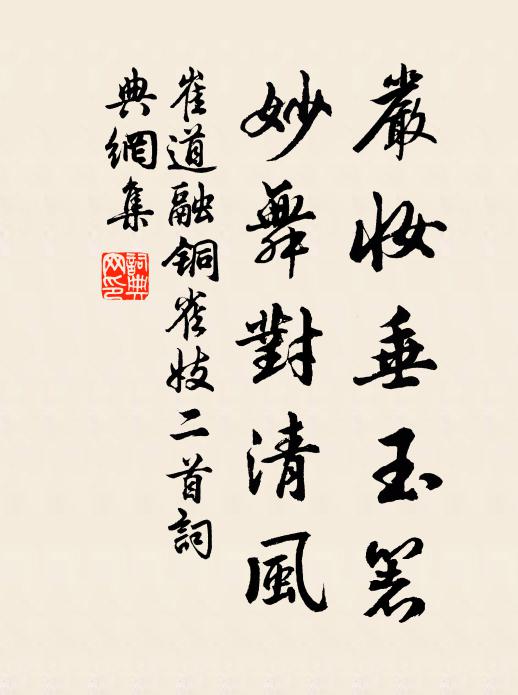 嚴妝垂玉箸
妙舞對清風
崔道融銅雀妓二首詞
典網集
詞典網印